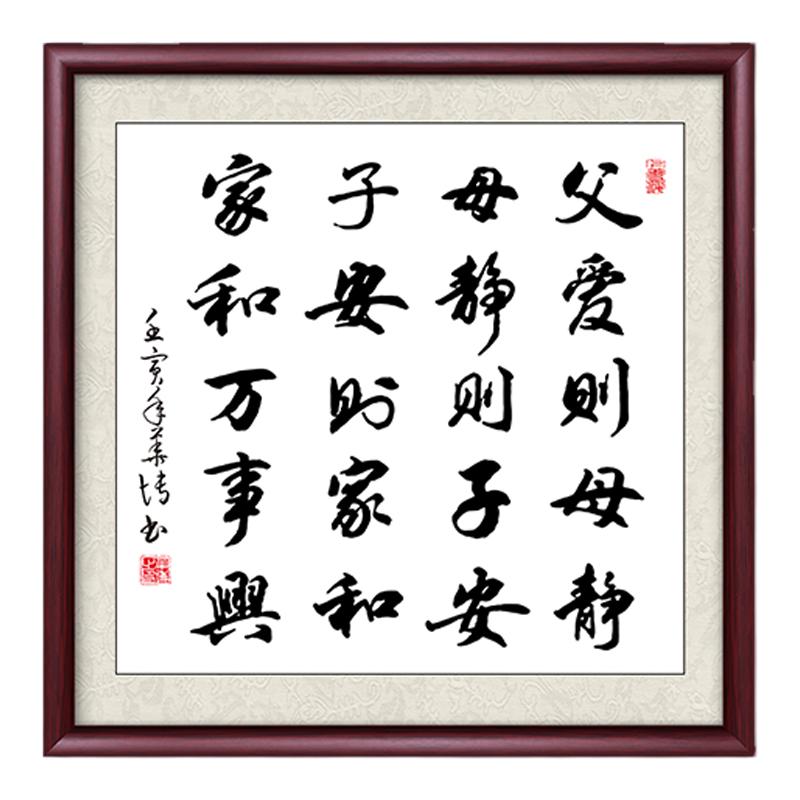 父爱则母静
母静则子安
子安则家和
家和万事興
壬寅年華博书